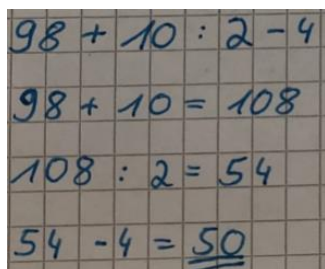 98 + 10 : 2 - 4
98 + 10 = 108
108 : 2 = 54
54 - 4 = 50